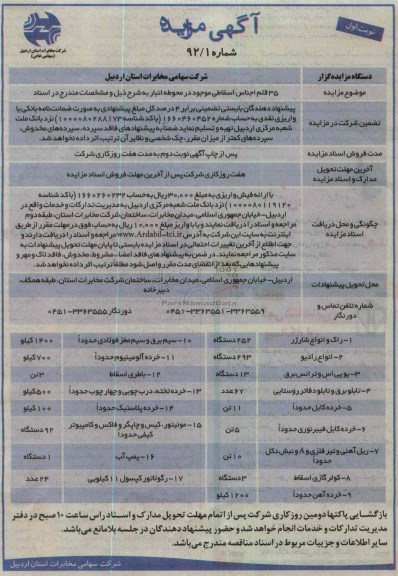 نوبت اول
آگهی مزایده
شماره ۹۲/۱
شرکت مخابرات استان اردبیل
(سهامی خاص)
دستگاه مزایده گزار
شرکت سهامی مخابرات استان اردبیل
موضوع مزایده
۳۵ قلم اجناس اسقاطی موجود در محوطه انبار به شرح ذیل و مشخصات مندرج در اسناد
تضمین شرکت در مزایده
پیشنهاد دهندگان بایستی تضمینی برابر ۴ درصد کل مبلغ پیشنهادی به صورت ضمانت نامه بانکی یا
واریزی نقدی به حساب شماره ۱۶۶۰۴۶۰۴۵۲ (با کد شناسه ۱۰۰۰۰۸۰۲۸۸۱۷۳) نزد بانک ملت
شعبه مرکزی اردبیل تهیه و تسلیم نماید ضمنا به پیشنهادهای فاقد سپرده، سپرده های مخدوش،
سپرده های کمتر از میزان مقرر، چک شخصی و نظایر آن ترتیب اثر داده نخواهد شد.
مدت فروش اسناد مزایده
پس از چاپ آگهی نوبت دوم به مدت هفت روز کاری شرکت
آخرین مهلت تحویل
مدارک و اسناد مزایده
هفت روز کاری شرکت پس از آخرین مهلت فروش اسناد مزایده
چگونگی و محل دریافت
اسناد مزایده
با ارائه فیش واریزی به مبلغ ۳۰,۰۰۰ ریال به حساب ۱۶۶۰۲۶۰۲۳۲ (با کد شناسه
۱۰۰۰۰۸۰۱۱۹۱۲۰) نزد بانک ملت شعبه مرکزی اردبیل به مدیریت تدارکات و خدمات واقع در
اردبیل - خیابان جمهوری اسلامی، میدان مخابرات، ساختمان شرکت مخابرات استان، طبقه دوم
مراجعه و اسناد را دریافت نمایند و یا با واریز مبلغ ۱۰,۰۰۰ ریال به حساب فوق در مهلت مقرر از طریق
اینترنت به سایت این شرکت به آدرس www.Ardabil-tci.ir مراجعه و اسناد را دریافت دارند و
جهت اطلاع از آخرین تغییرات احتمالی در اسناد مزایده بایستی تا پایان مهلت تحویل پیشنهادات به
سایت مذکور مراجعه نمایند. در ضمن به پیشنهادهای فاقد امضا، مشروط، مخدوش، فاقد لاک و مهر و
پیشنهادهایی که بعد از انقضای مدت مقرر واصل شود مطلقا ترتیب اثر داده نخواهد شد.
محل تحویل پیشنهادات
اردبیل- خیابان جمهوری اسلامی، میدان مخابرات، ساختمان شرکت مخابرات استان، طبقه همکف،
دبیرخانه
شماره تلفن تماس و
دورنگار
۰۴۵۱-۳۳۶۳۵۵۱-۳۳۶۳۵۵۹ دورنگار ۳۳۶۳۵۵۵-۰۴۵۱
ParsNamadData
۱- راک و انواع شارژر ۲۵۲ دستگاه ۱۰- سیم برق و سیم مغز فولادی حدوداً ۱۴۰۰ کیلو
۲- انواع رادیو ۲۹۳ دستگاه ۱۱- خرده آلومینیوم حدوداً ۷۰۰ کیلو
۳- یو پی اس و ترانس برق ۱۳ دستگاه ۱۲- باطری اسقاط ۳ تن
۴- تابلو برق و تابلو دفاتر روستایی ۶۷ عدد ۱۳- خرده تخته، درب چوبی و چهار چوب حدوداً ۵۰۰ کیلو
۵- خرده کابل حدوداً ۱۱ تن ۱۴- خرده پلاستیک حدوداً ۱۰۰ کیلو
۶- خرده کابل فیبر نوری حدوداً ۵ تن ۱۵- مونیتور، کیس و چاپگر و فاکس و کامپیوتر
کیفی حدوداً ۹۲ دستگاه
۷- ریل آهنی و تیر فلزی و ۸ و نبش دکل
حدوداً ۱۰ تن ۱۶- پمپ آب ۱ دستگاه
۸- کولر گازی اسقاط ۳ دستگاه ۱۷- رگولاتور کپسول ۱۱ کیلویی ۲۴ عدد
۹- خرده آهن حدوداً ۱۲۰۰ کیلو
بازگشایی پاکتها دومین روز کاری شرکت پس از اتمام مهلت تحویل مدارک و اسناد راس ساعت ۱۰ صبح در دفتر
مدیریت تدارکات و خدمات انجام خواهد شد و حضور پیشنهاد دهندگان در جلسه بلامانع می باشد.
سایر اطلاعات و جزییات مربوط در اسناد مناقصه مندرج می باشد.
شرکت سهامی مخابرات استان اردبیل